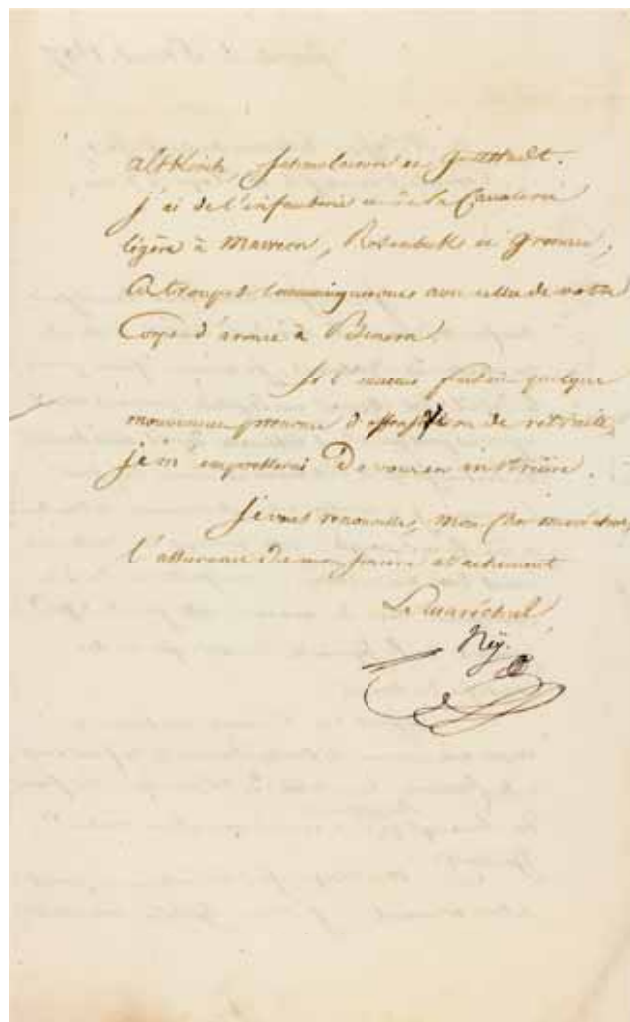 Altkirch, et Guttstadt.
J'ai de l'infanterie et de la Cavalerie
légère à , et ,
Ces troupes communiqueront avec celles de votre
Corps d'armée à
Si l'ennemi faisait quelque
mouvement prononcé d'offensive ou de retraite,
je m'empresserai De vous en instruire.
Je vous renouvelle, Mon Cher maréchal,
l'assurance De mon sincère attachement
Le maréchal
Ney.